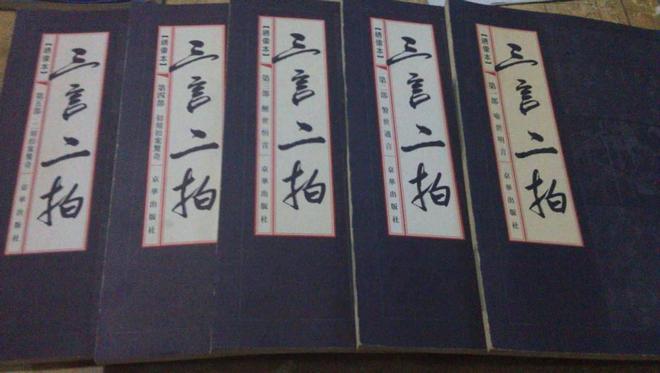 【綉像本】
第五部 二刻拍案驚奇 京華出版社
三言二拍
【綉像本】
第四部 初刻拍案驚奇 京華出版社
三言二拍
【綉像本】
第三部 醒世恒言 京華出版社
三言二拍
【綉像本】
第二部 警世通言 京華出版社
三言二拍
【綉像本】
第一部 喻世明言 京華出版社
三言二拍